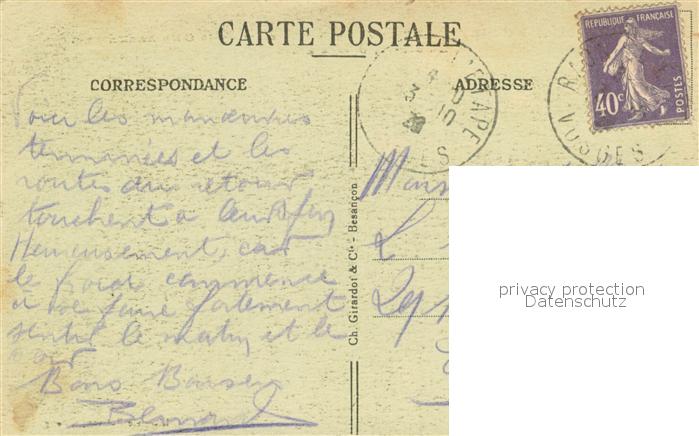 CARTE POSTALE
CORRESPONDANCE
ADRESSE
REPUBLIQUE FRANÇAISE
40c
POSTES
VOSGES
Voici les manœuvres
terminées et les
routes du retour
touchent à leur fin
Heureusement, car
le froid commence
à se faire fortement
sentir le matin et le
soir
Bons Baisers
Ch. Girardot & Cie - Besançon
privacy protection
Datenschutz